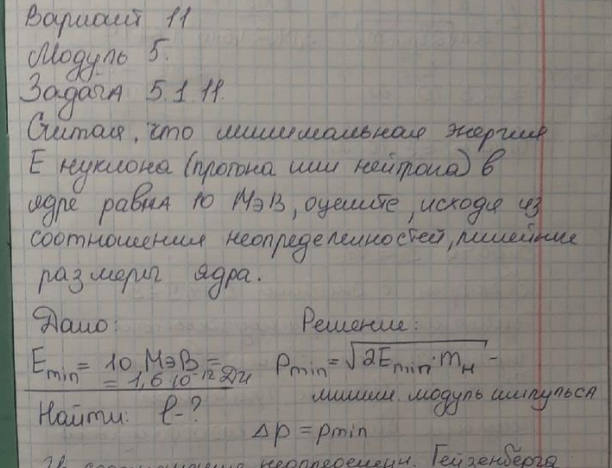 Вариант 11
Модуль 5.
Задача 5.1.11.
Считая, что минимальная энергия
E нуклона (протона или нейтрона) в
ядре равна 10 МэВ, оцените, исходя из
соотношения неопределенностей, линейные
размеры ядра.
Дано: Решение:
E_min = 10 МэВ = p_min = √(2E_min · m_н) –
= 1,6·10⁻¹² Дж
миним. модуль импульса
Найти: ℓ-?
Δp = p_min
Из соотношения неопределенн. Гейзенберга: